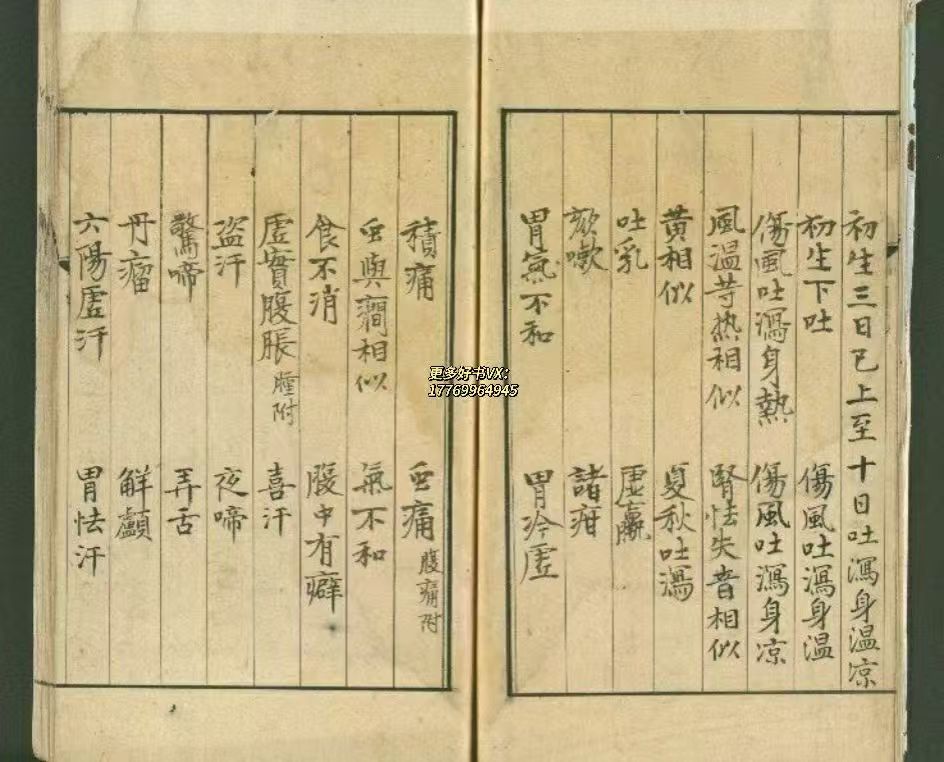 初生三日已上至十日吐瀉身温凉
初生下吐 傷風吐瀉身温
傷風吐瀉身熱 傷風吐瀉身凉
風温苛热相似 腎怯失音相似
黄相似 夏秋吐瀉
吐乳 虚羸
欬嗽 諸疳
胃氣不和 胃冷虚
積痛 虫痛 腹痛附
虫與癎相似 氣不和
食不消 腹中有癖
虚實腹脹 腫附 喜汗
盗汗 夜啼
驚啼 弄舌
丹瘤 解顱
六陽虚汗 胃怯汗
更多好书VX:
17769964945